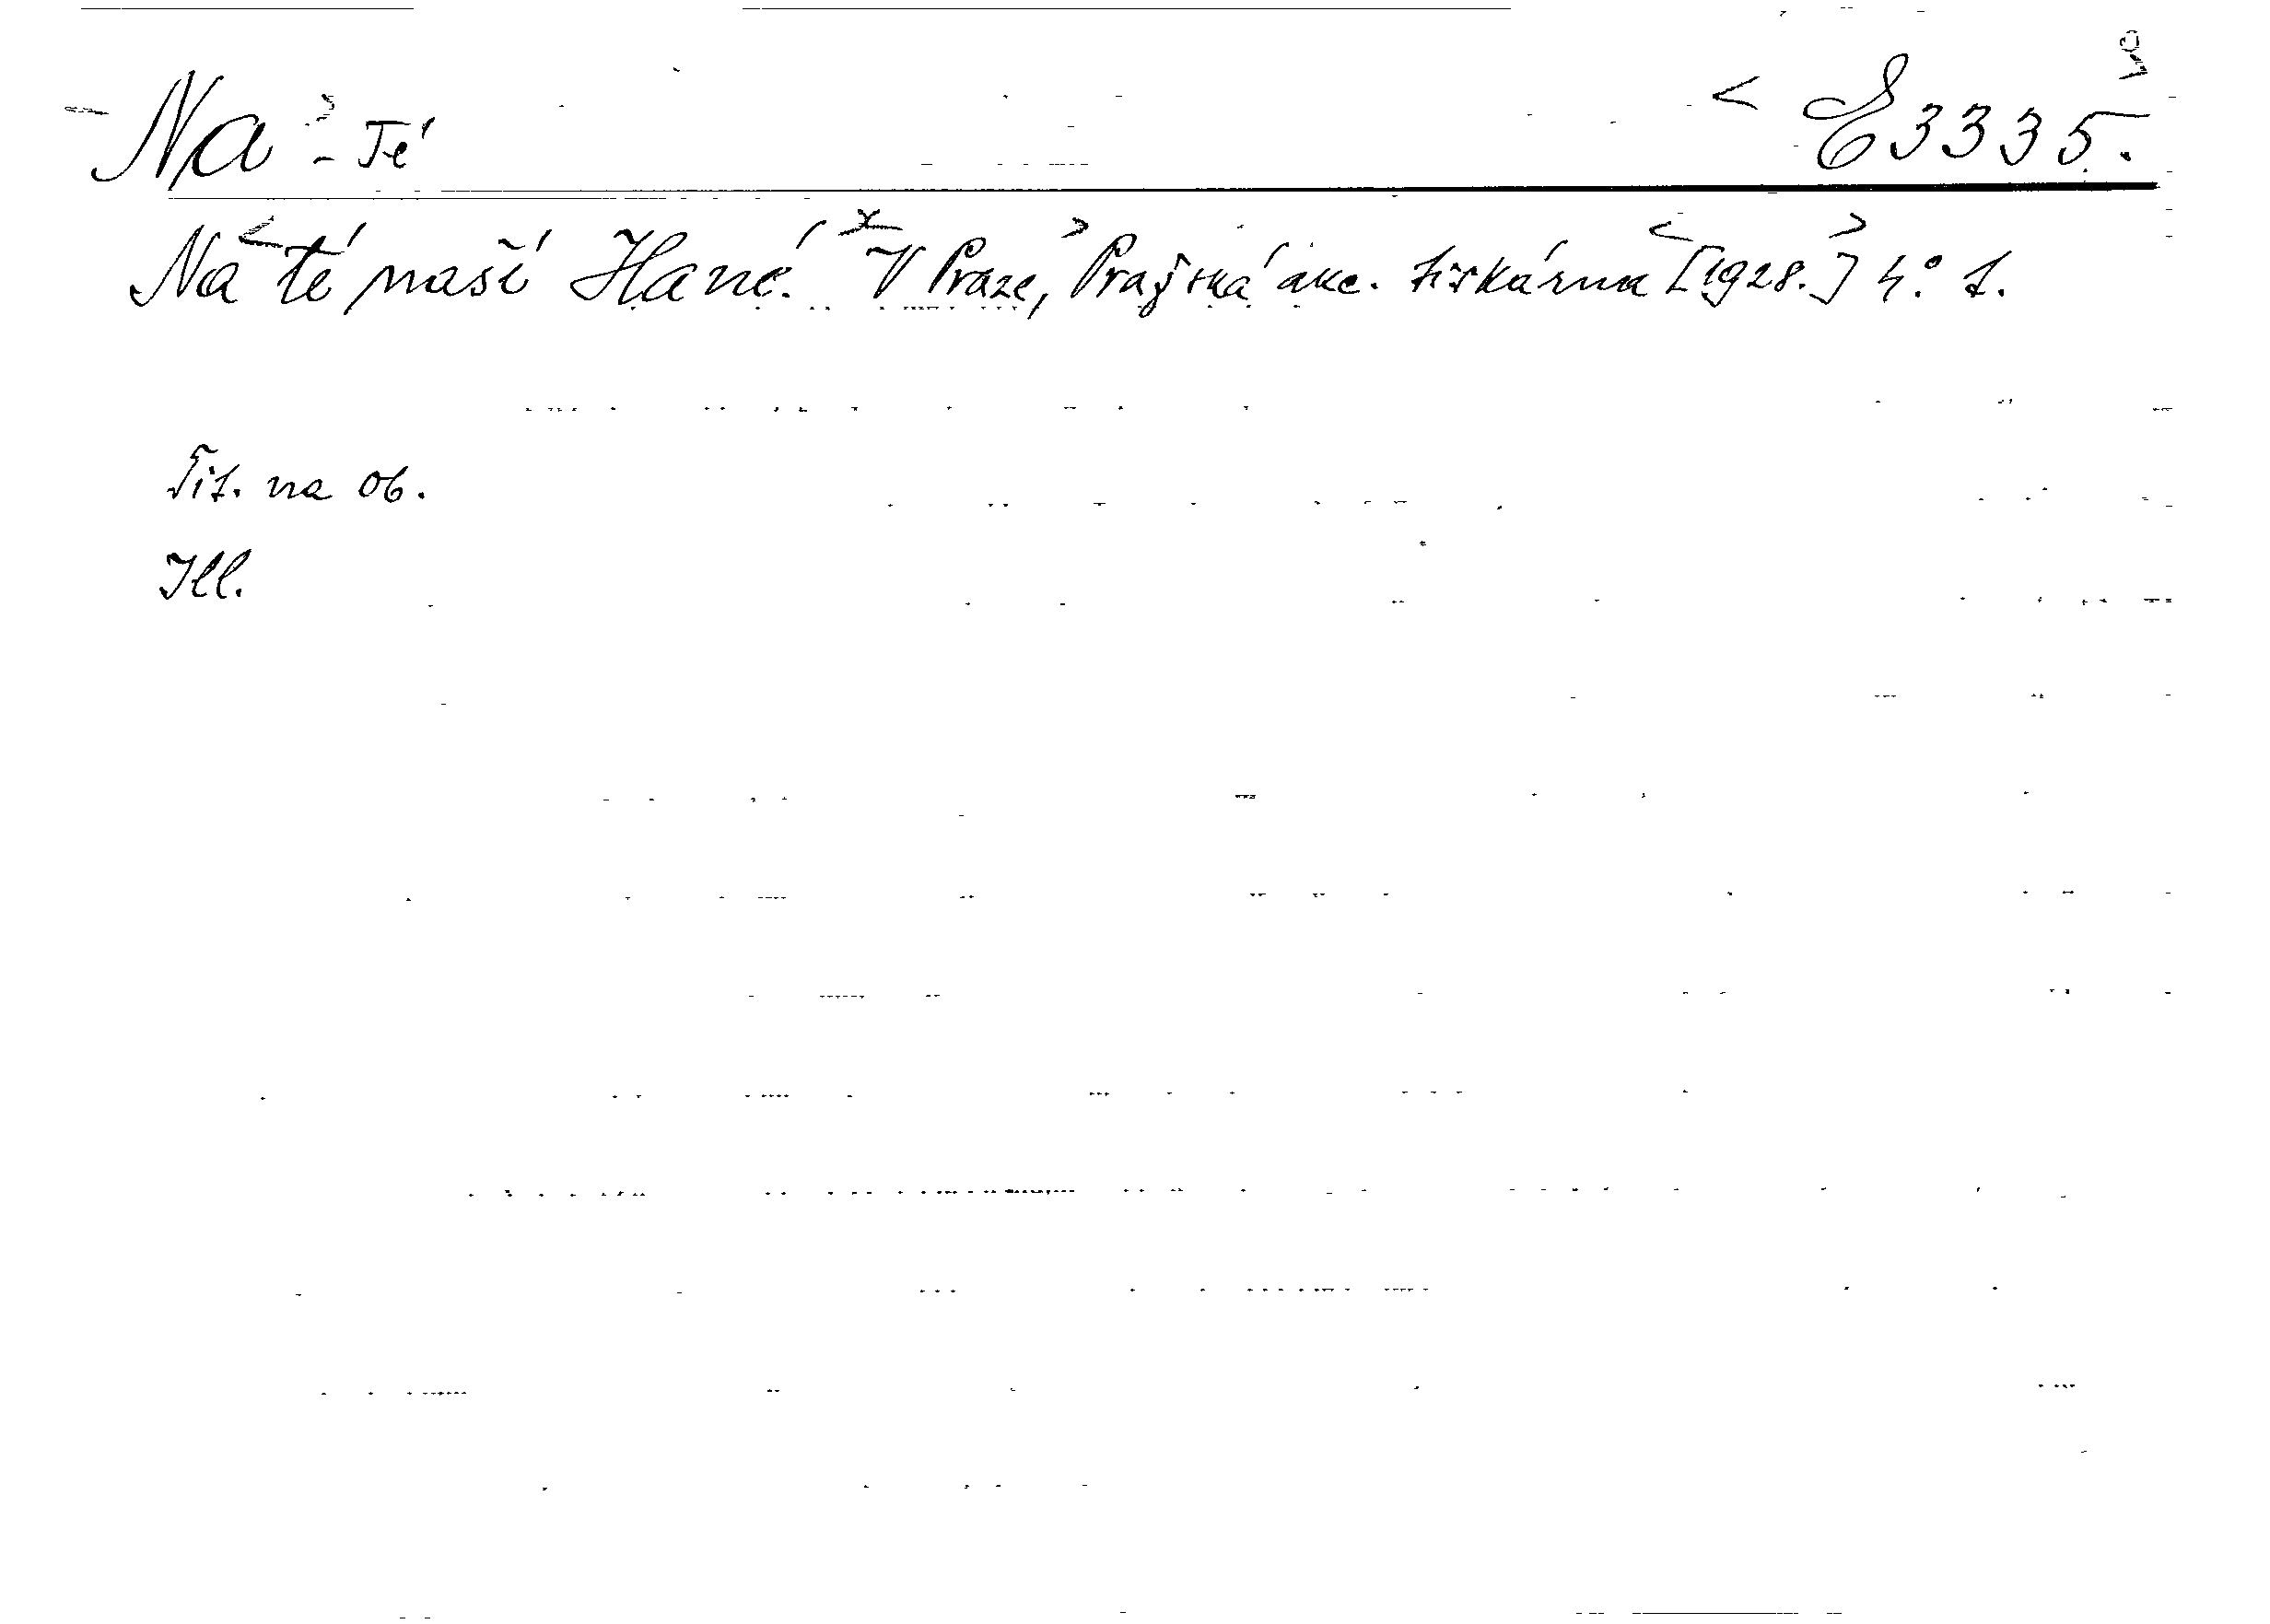 Na - Té
E 3335.
Na té naší Hané. V Praze, Pražská akc. tiskárna [1928.] 4° 1.
Tit. na ob.
Ill.